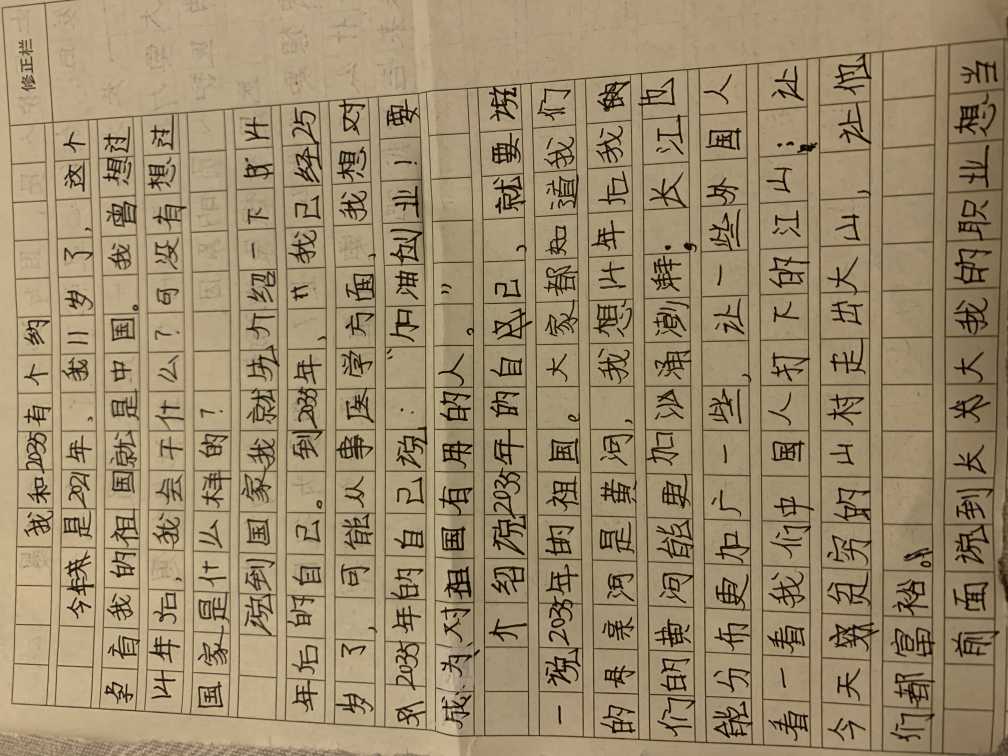 修正栏
我和2035有个约
今年是2021年，我11岁了，这个
孕育我的祖国就是中国。我曾想过
14年后，我会干什么？可没有想过
国家是什么样的？
说到国家我就先介绍一下我14
年后的自己。到2035年，我已经25
岁了，可能从事医学方面，我想对
对2035年的自己说：“加油创业！要
成为对祖国有用的人。”
介绍说2035年的自己，就要说
一说2035年的祖国。大家都知道我们
的母亲河是黄河，我想14年后我的
们的黄河能更加汹涌澎湃；长江也
能分布更加广一些，让一些外国人
看一看我们中国人打下的江山；让
今天贫穷的山村走出大山，让他
们都富裕。
前面说到长大我的职业想当